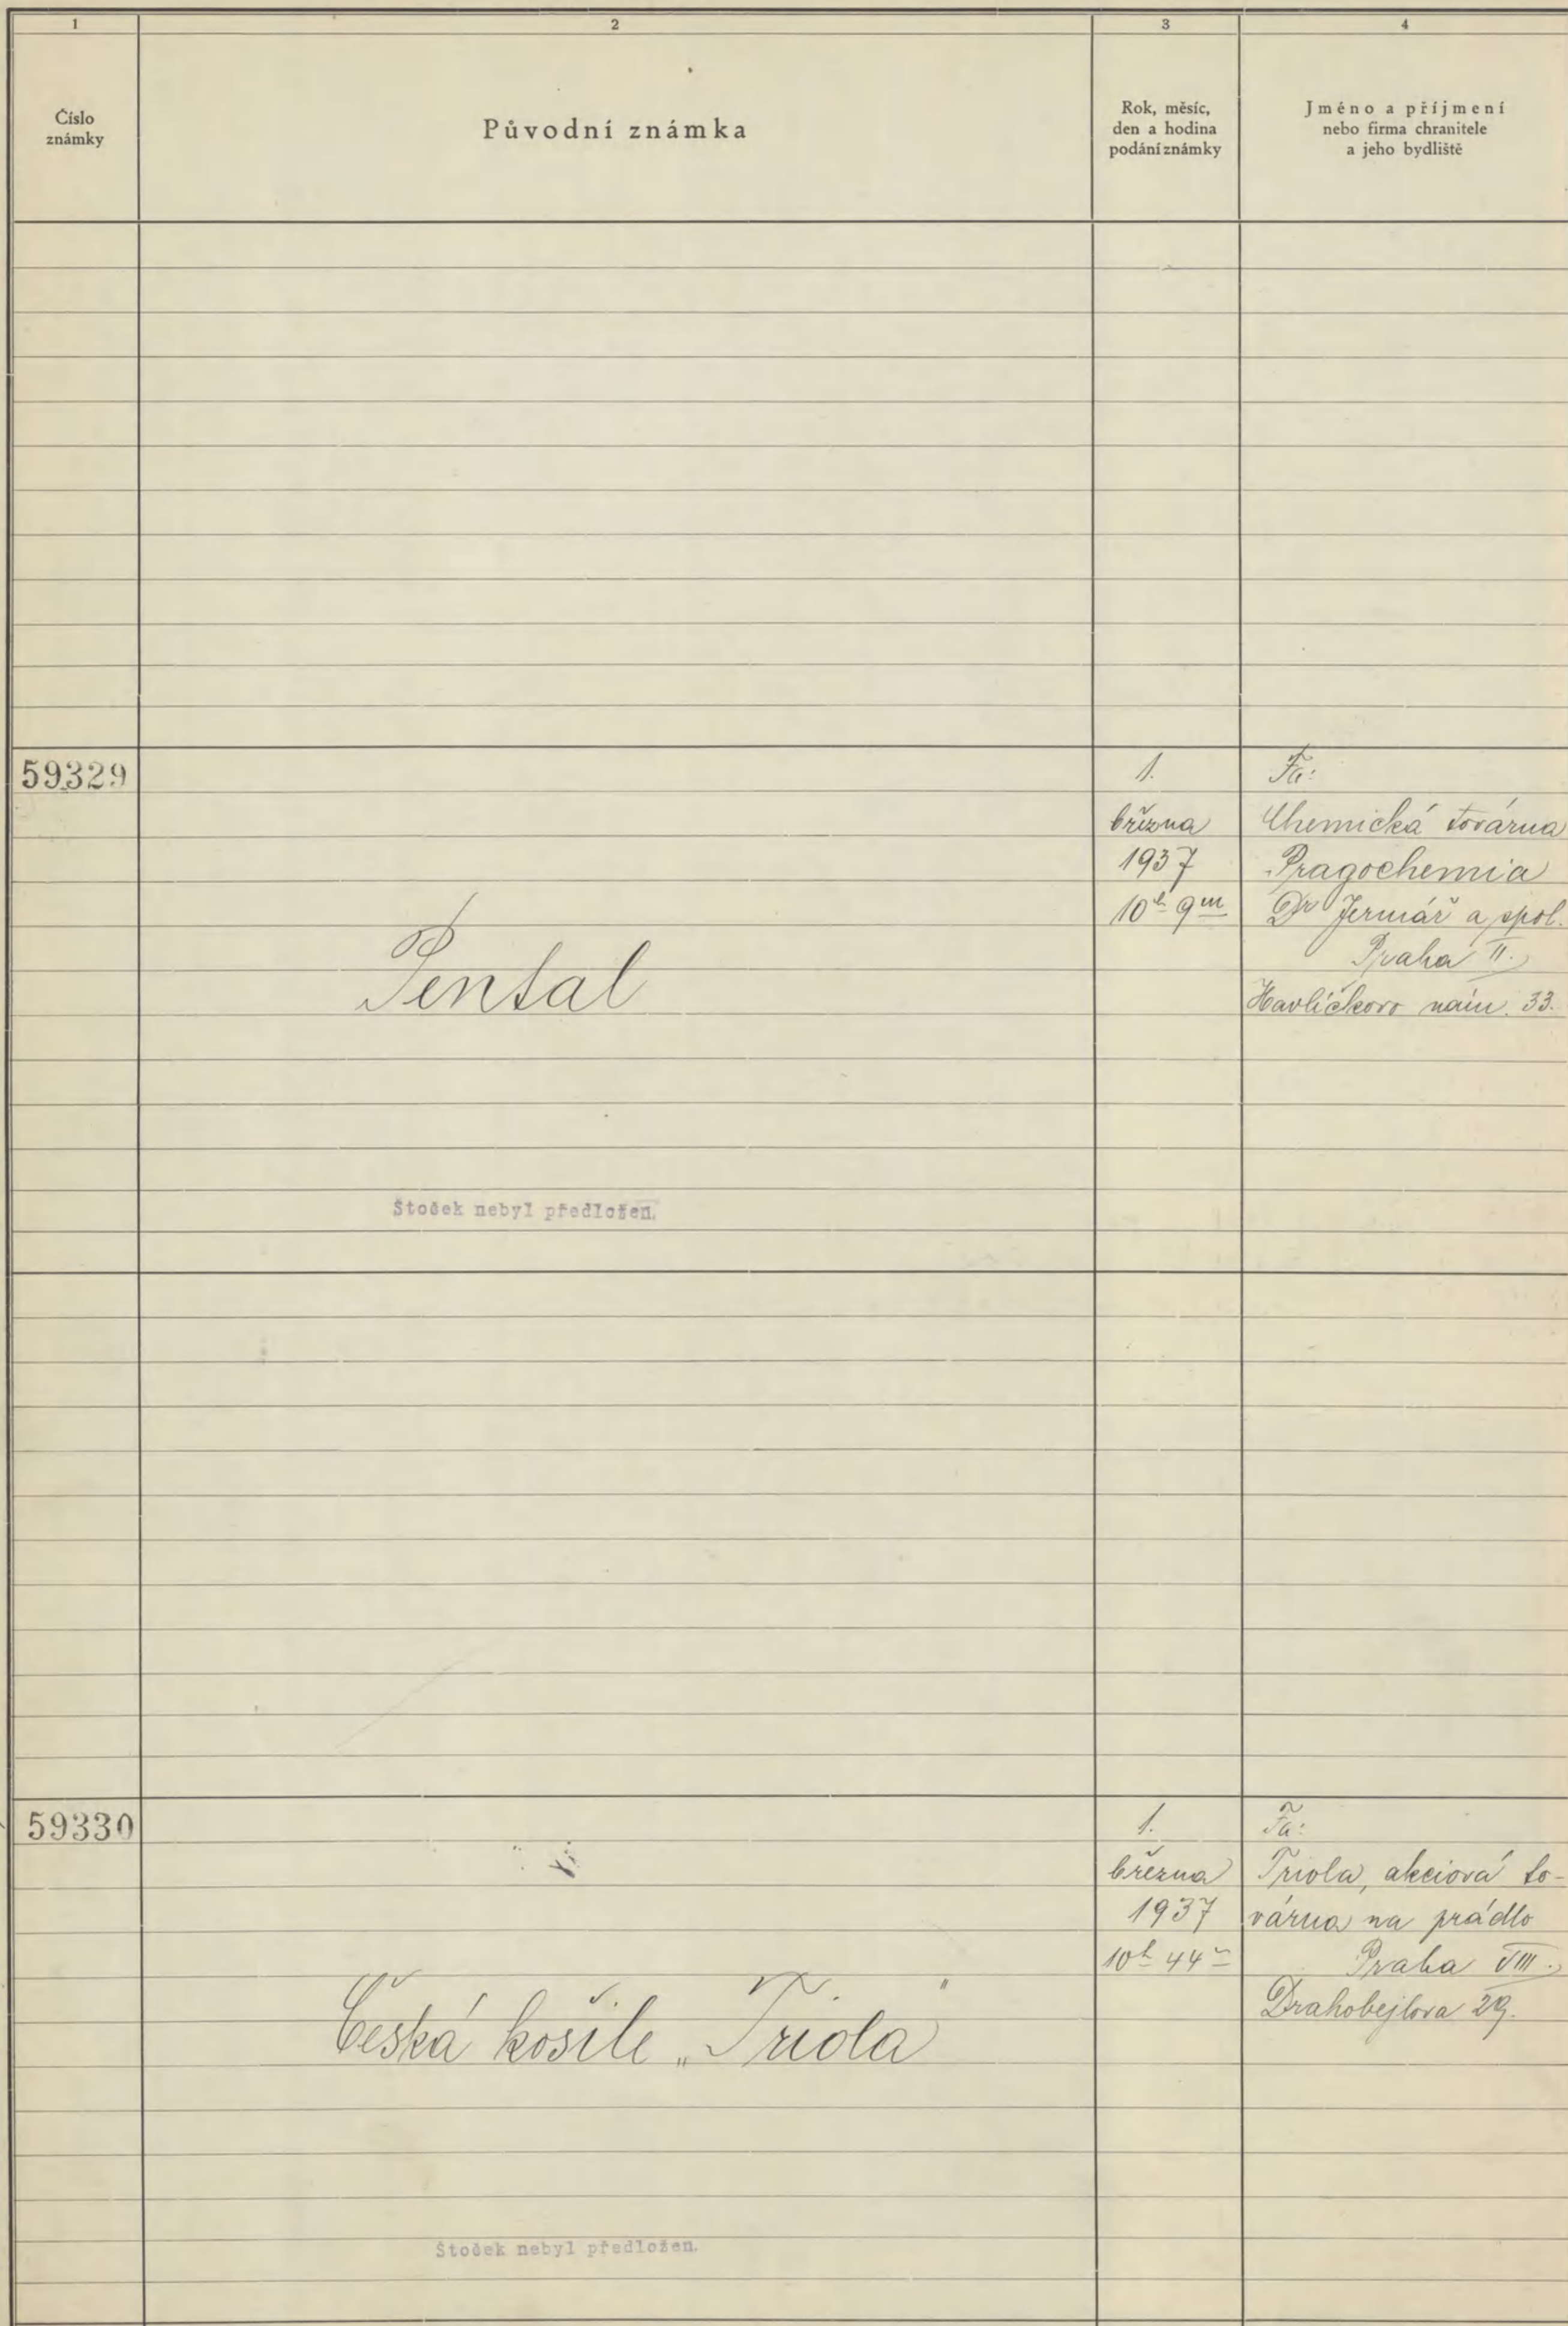 1 2 3 4
Číslo
známky
Původní známka
Rok, měsíc,
den a hodina
podání známky
Jméno a příjmení
nebo firma chranitele
a jeho bydliště
59329
Pental
Štoček nebyl předložen.
1.
března
1937
10h 9m
Fa:
Chemická továrna
Pragochemia
Dr Jermář a spol.
Praha II.
Havlíčkovo nám. 33.
59330
Česká košile „Triola"
Štoček nebyl předložen.
1.
března
1937
10h 44m
Fa:
Triola, akciová to-
várna na prádlo
Praha VIII.
Drahobejlova 29.